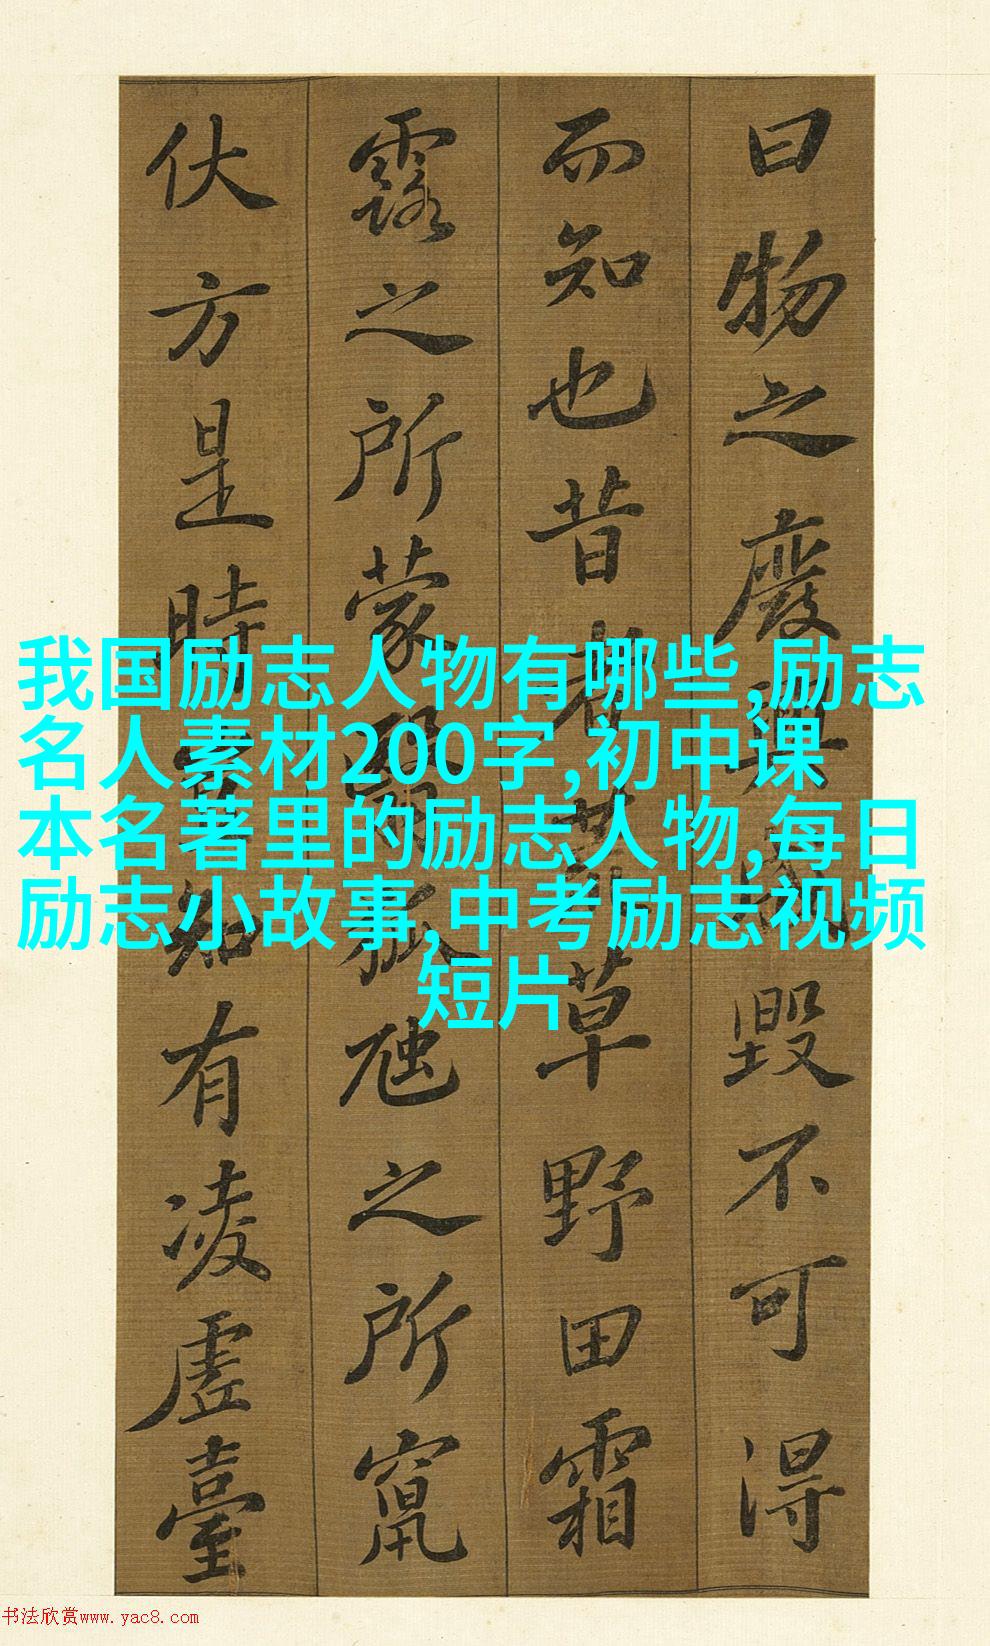 曰物之廢興成毀不可得
而知也昔者荒草野田霜
露之所蒙翳狐虺之所竄
伏方是時豈知有凌虛臺
我国励志人物有哪些,励志
名人素材200字,初中课
本名著里的励志人物,每日
励志小故事,中考励志视频
短片
书法欣赏www.yac8.com